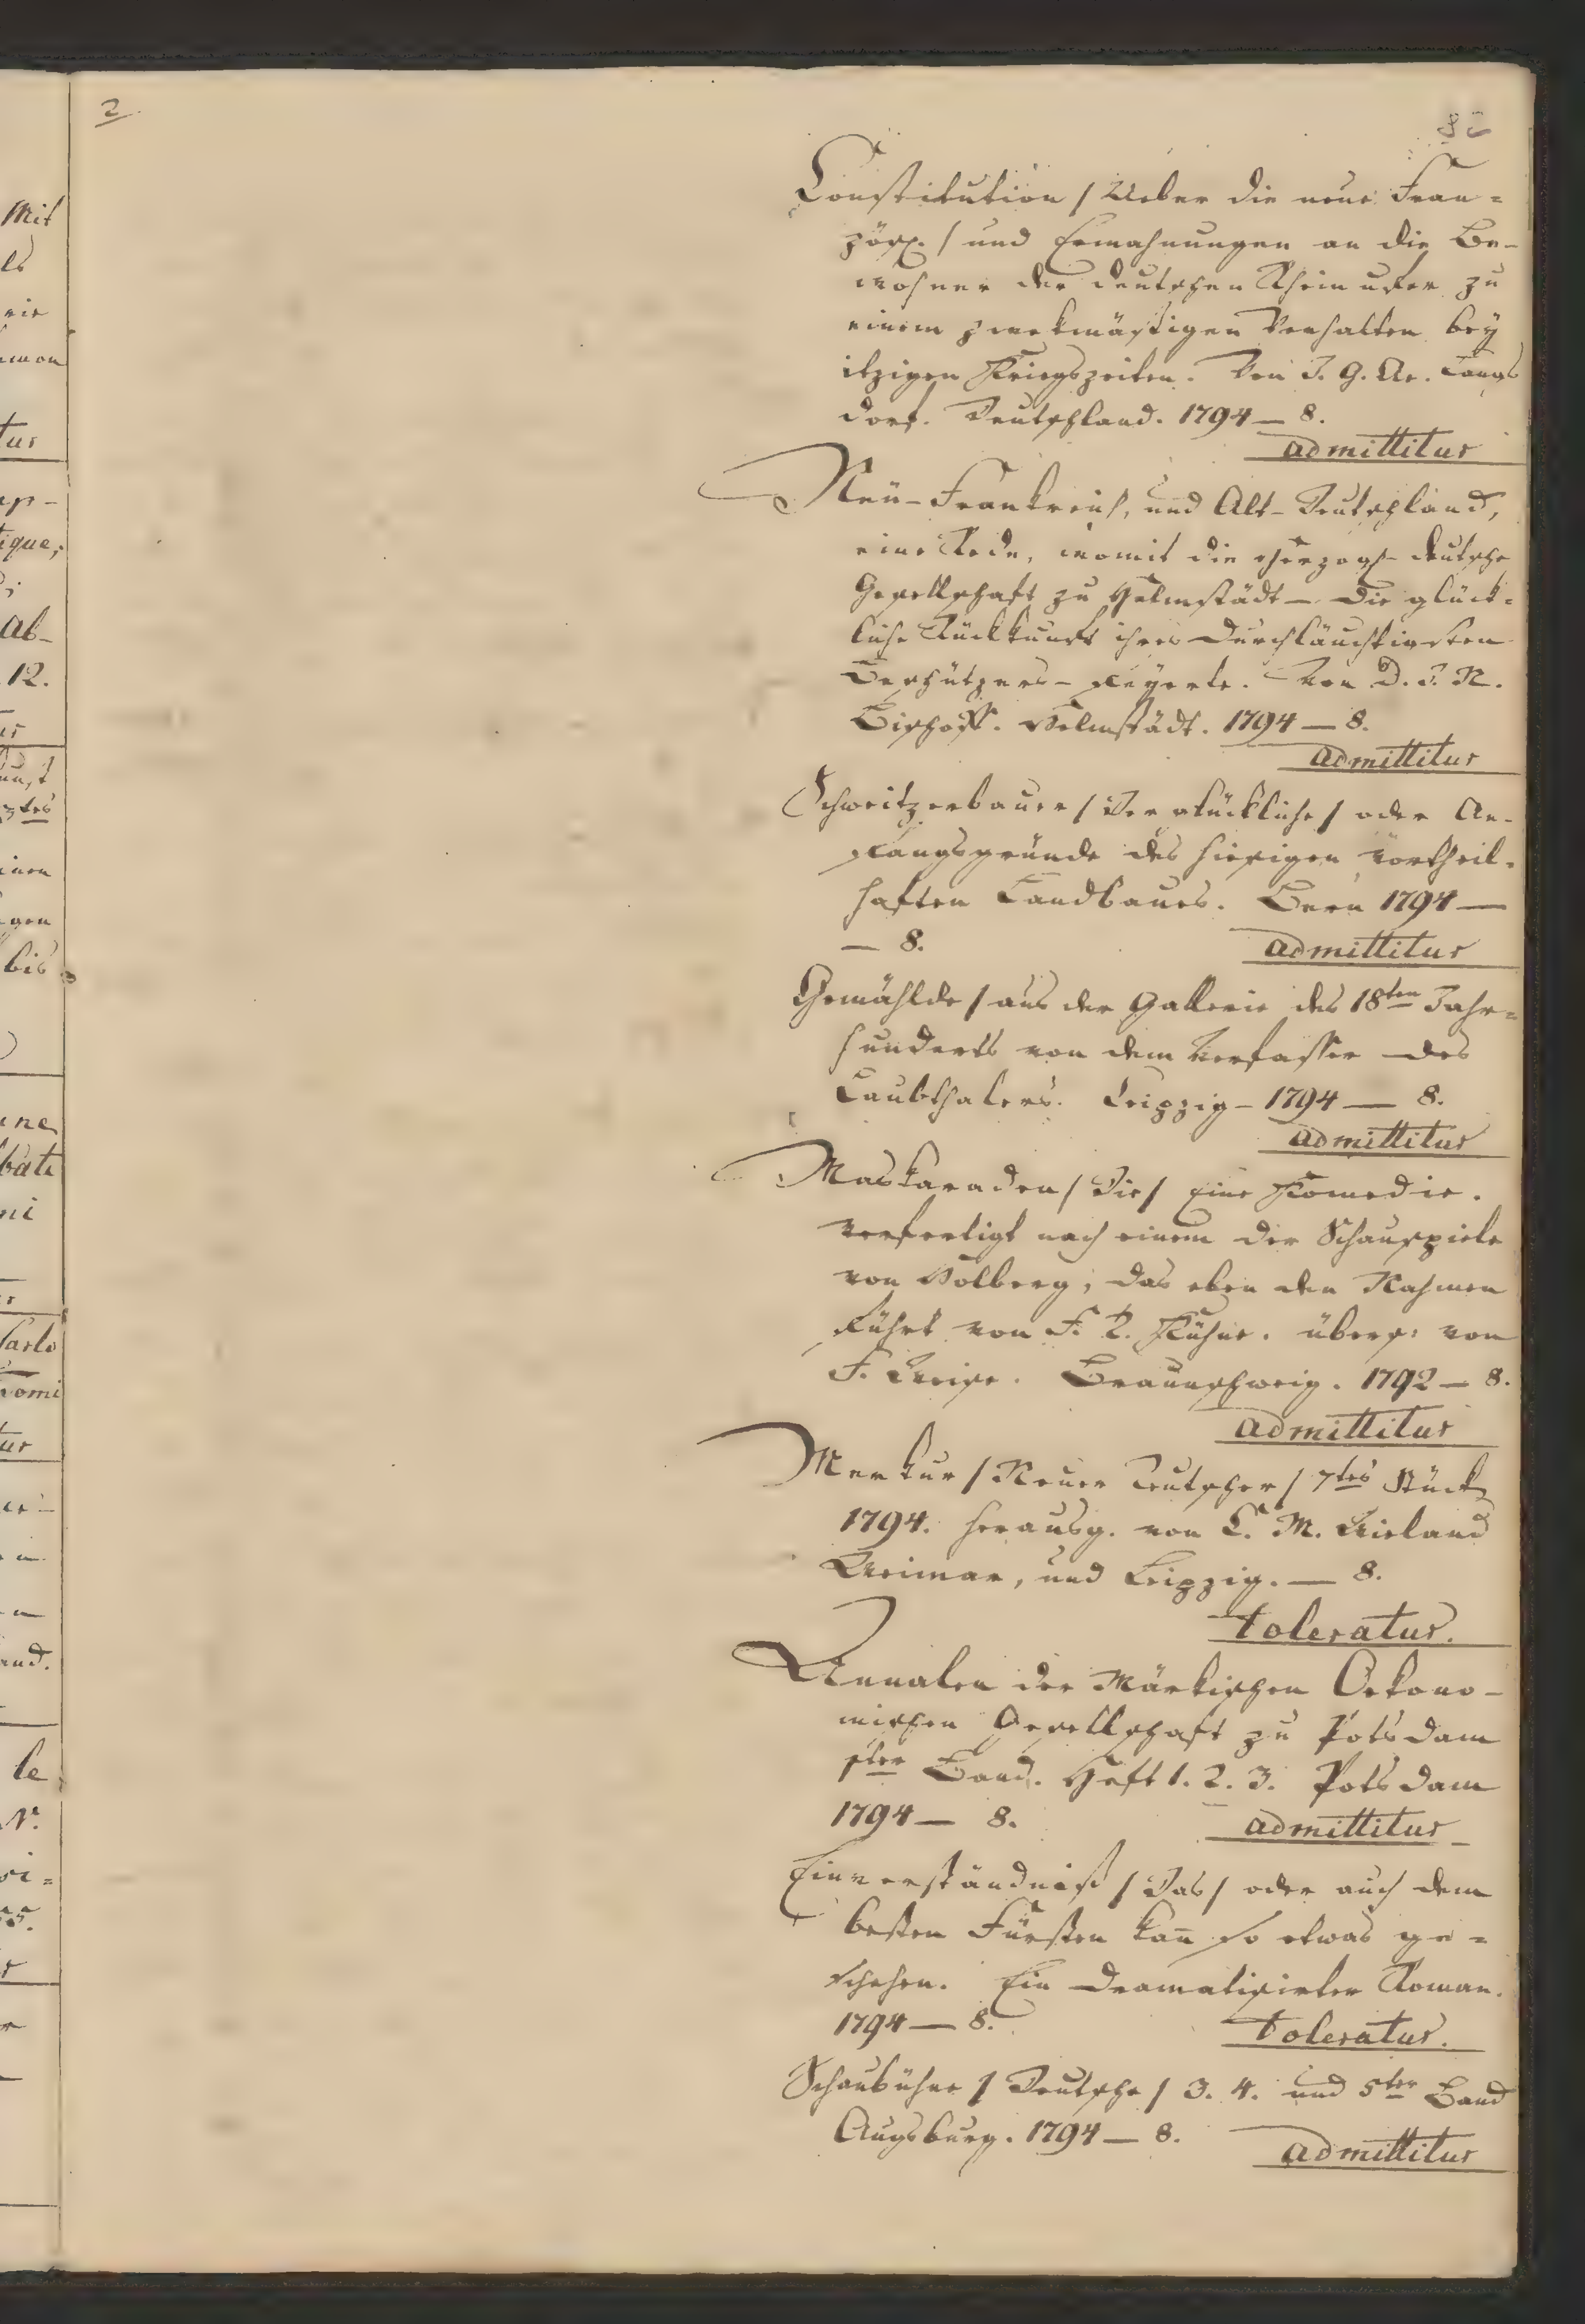 2
Constitution / Ueber die neue Fran=
zös. / und Ermahnungen an die Be-
wohner der deutschen Rheinufer zu
einem zwekmäßigen Verhalten bey
itzigen Kriegszeiten. Von J. G. Langs
dorf. Deutschland. 1794 — 8.
admittitur
Neu-Frankreich, und Alt-Deutschland,
eine Rede, womit die herzogl- deutsche
Gesellschaft zu Helmstädt — die glück=
liche Rückkunft ihres Durchläuchtigsten
Beschützers — feyerte. Von D. J. N.
Bischoff. Helmstädt. 1794 — 8.
admittitur
Schweitzerbauer / Der glückliche / oder An-
fangsgründe des hiesigen vortheil-
haften Landbaues. Bern 1794 —
— 8. admittitur
Gemählde / aus der Gallerie des 18ten Jahr=
hunderts von dem Verfasser des
Laubthalers. Leipzig — 1794 — 8.
admittitur
Maskaraden / Die / Eine Komedie.
verfertigt nach einem der Schauspiele
von Holberg, das eben den Nahmen
führt von F. Kühne. übers: von
F. Weise. Braunschweig. 1792 — 8.
admittitur
Merkur / Neuer Teutscher / 7tes Stück
1794. herausg. von C. M. Wieland
Weimar, und Leipzig. — 8.
toleratur.
Annalen der Märkischen Oekono-
mischen Gesellschaft zu Potsdam
1ter Band. Heft 1. 2. 3. Potsdam
1794 — 8. admittitur
Einverständniß / Das / oder auch dem
besten Fürsten kan̄ so etwas ge=
schehen. Ein dramatisirter Roman.
1794 — 8. toleratur.
Schaubühne / Deutsche / 3. 4. und 5ter Band
Augsburg. 1794 — 8.
admittitur